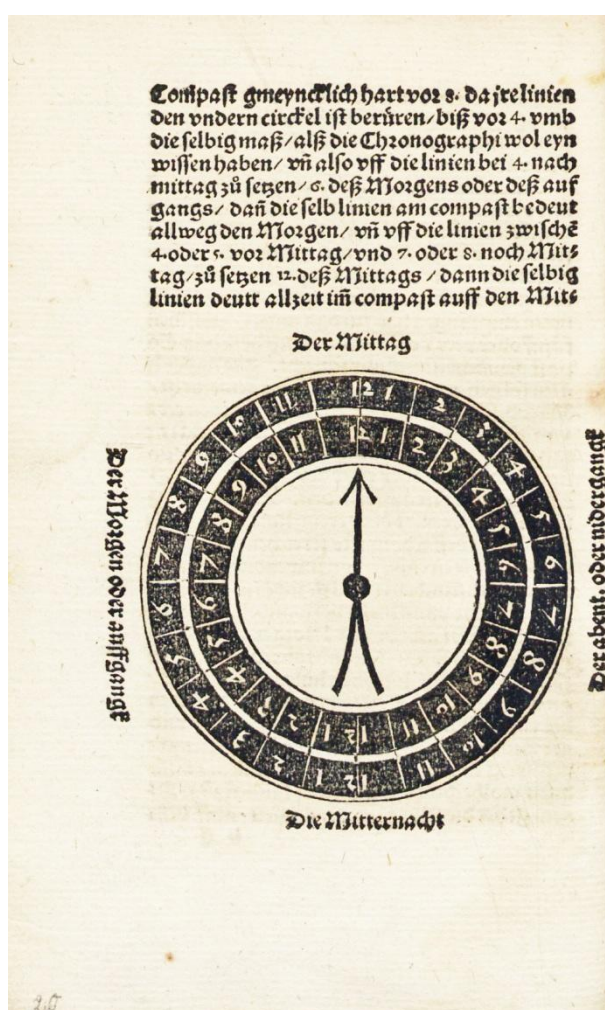 Compast gmeyncklich hart vor 8. da jre linien
den vndern circkel ist berüren/ biß vor 4. vmb
die selbig maß/ alß die Chronographi wol eyn
wissen haben/ vñ also vff die linien bei 4. nach
mittag zů setzen/ 6. deß Morgens oder deß auf
gangs/ dañ die selb linien am compast bedeut
allweg den Morgen/ vñ vff die linien zwischē
4. oder 5. vor Mittag/ vnd 7. oder 8. noch Mit⸗
tag/ zů setzen 12. deß Mittags / dann die selbig
linien deutt allzeit im̃ compast auff den Mit⸗
Der Mittag
12 1 2 3 4 5 6 7 8 9 10 11 12 1 2 3 4 5 6 7 8 9 10 11
12 1 2 3 4 5 6 7 8 9 10 11 12 1 2 3 4 5 6 7 8 9 10 11
Der Morgen oder auffgangk
Der abent, oder nidergangk
Die Mitternacht